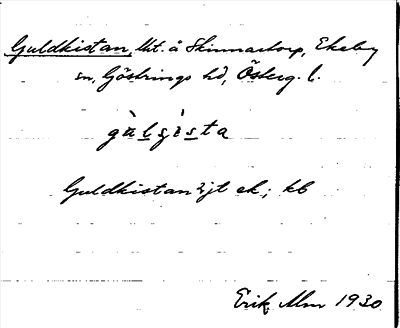 Guldkistan, lht. å Skinnarstorp, Ekeby
sn, Göstrings hd, Österg. l.
gùlsìsta
Guldkistan ek; kb
Erik Alm 1930